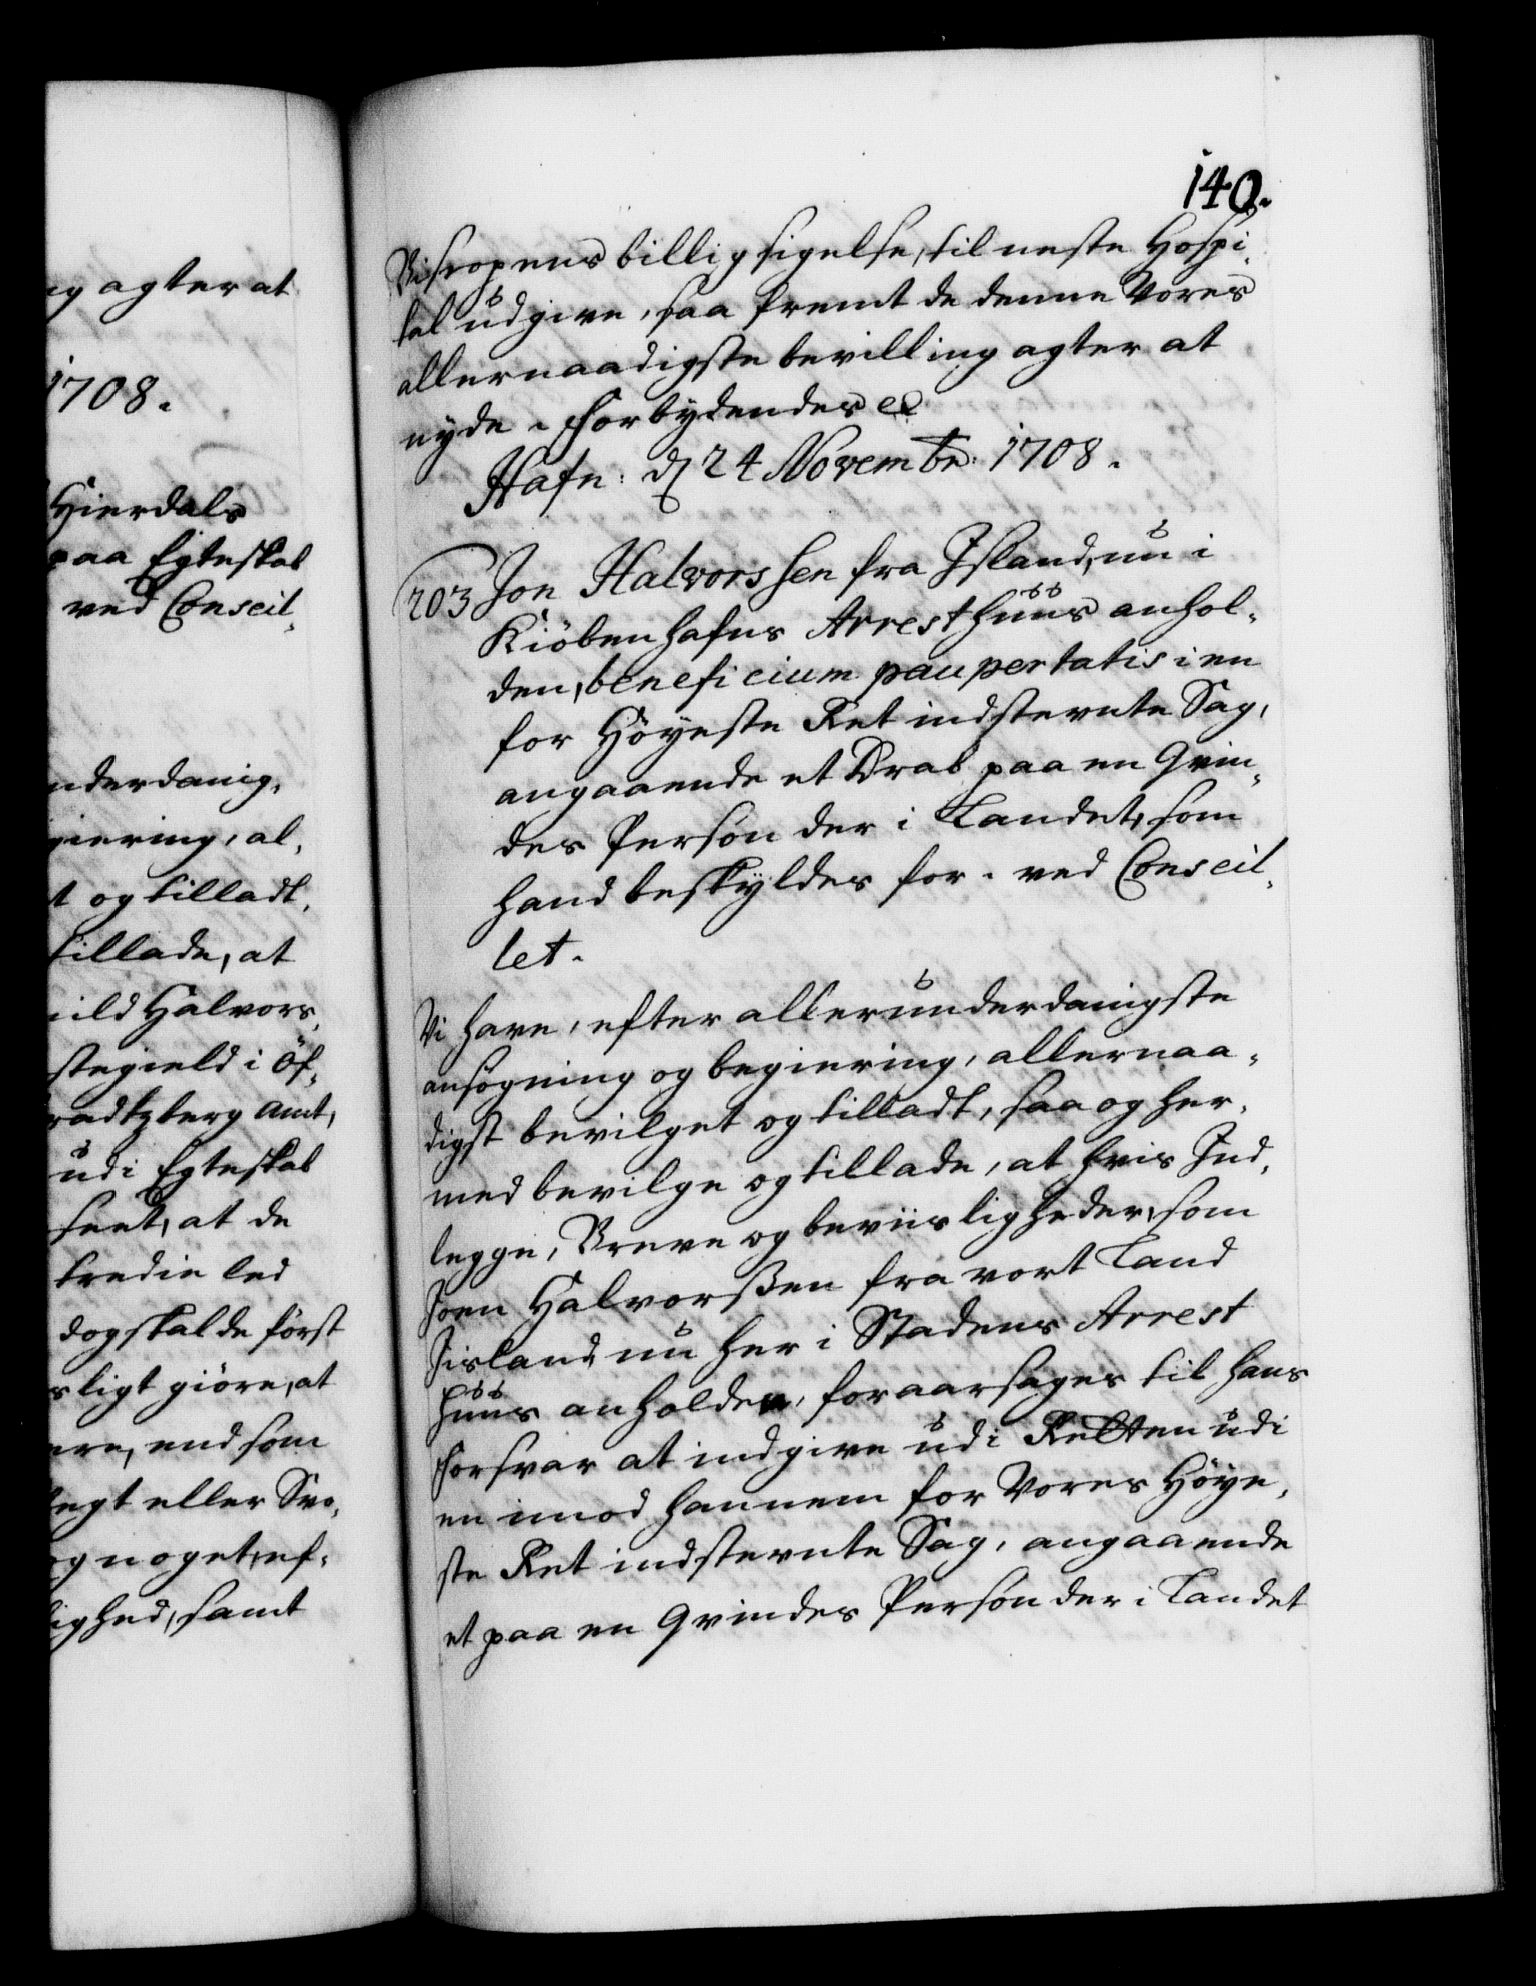 eg agter at
1708.
Hierdals
paa Egteskab
ved Conseil-
nderdanig-
giering, al-
t og tilladt,
tillade, at
ild Halvors-
stegield i Öf-
radtzberg Amt,
udi Egteskab
seet, at de
tredie led
dog skal de först
sligt giöre, at
ere, end som
egt eller Svo-
og noget, ef-
lighed, samt
140.
Biscopens billig sigelse, til neste Hospi-
tal udgive, saa fremt de denne Vores
allernaadigste bevilling agter at
nyde. Forbydendes etc
Hafn: d 24 Novembr: 1708.
203 Jon Halvorssen fra Island, nu i
Kiöbenhafns Arresthuus anhol-
den, beneficium paupertatis i en
for Höyeste Ret indstevnte Sag,
angaaende et Drab paa en Qvin-
des Person der i Landet, som
hand beskyldes for. ved Conseil-
let.
Vi have, efter allerunderdanigste
ansögning og begiering, allernaa-
digst bevilget og tilladt, saa og her-
med bevilge og tillade, at hvis Ind-
legge, Breve og beviisligheder, som
Joen Halvorßen fra vort Land
Jisland, nu her i Stadens Arrest
huus anholden, foraarsages til hans
forsvar at indgive udi Retten udi
en imod hannem for Vores Höye-
ste Ret indstevnte Sag, angaaende
et paa en Qvindes Person der i Landet